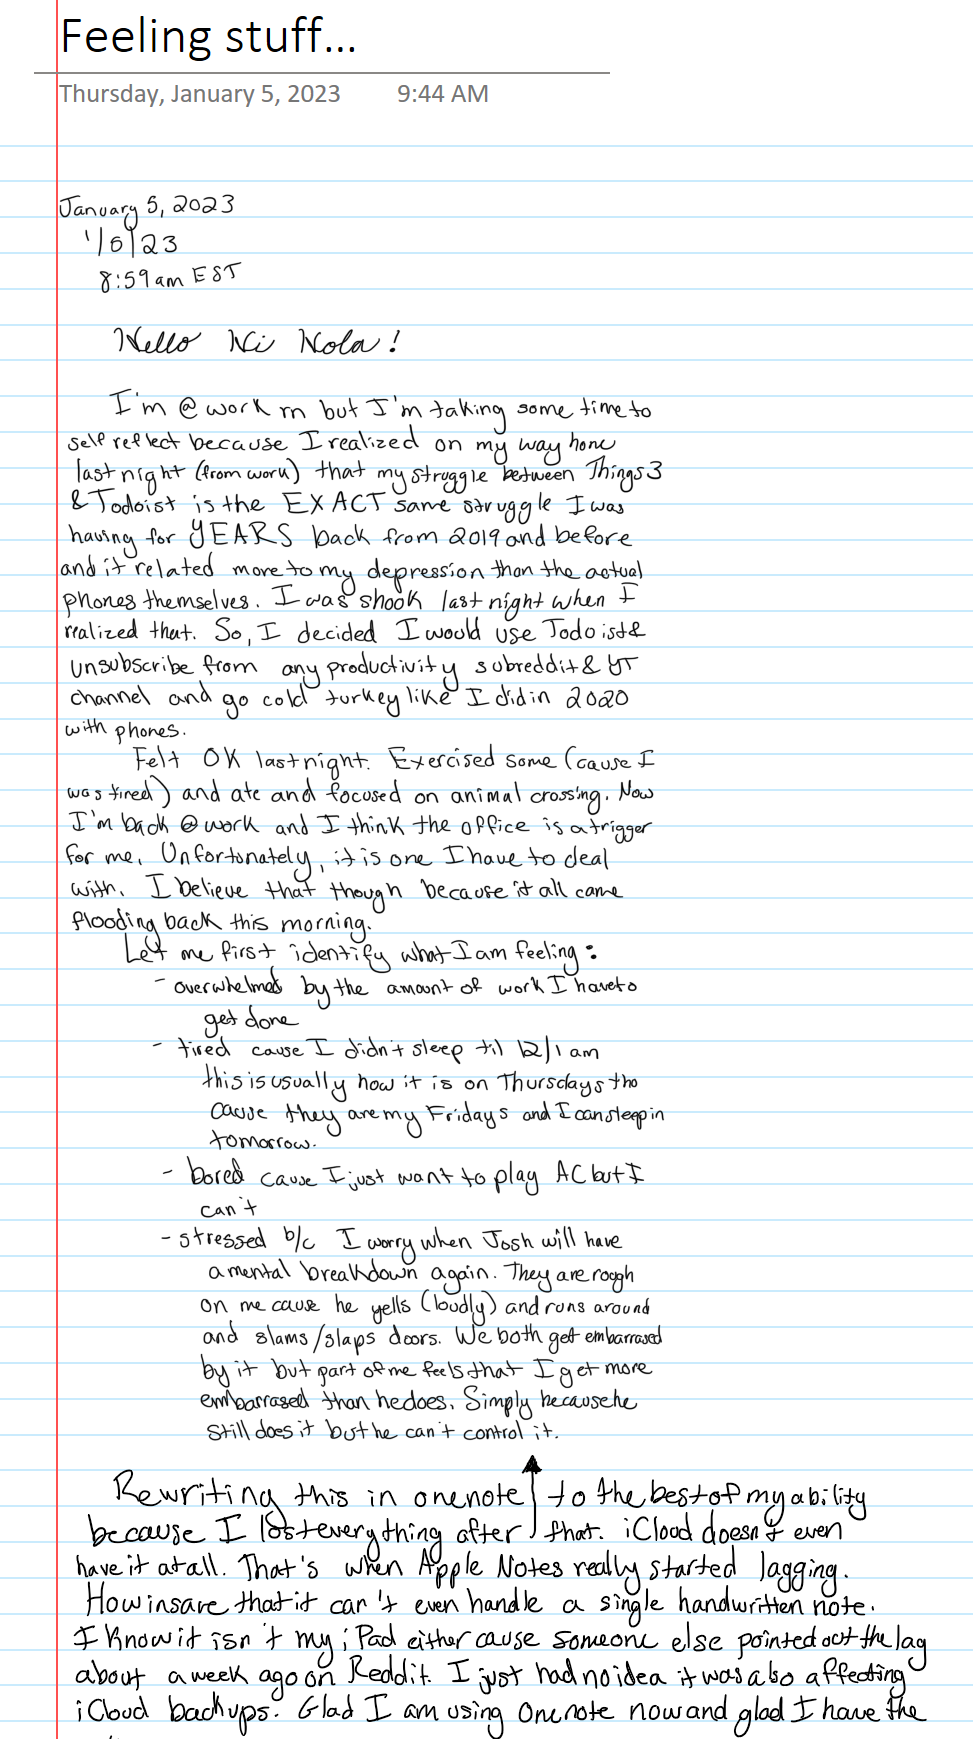 Feeling stuff...
Thursday, January 5, 2023 9:44 AM
January 5, 2023
1/5/23
8:59am EST
Hello Hi Hola!
I'm @ work rn but I'm taking some time to
self reflect because I realized on my way home
last night (from work) that my struggle between Things 3
& Todoist is the EXACT same struggle I was
having for YEARS back from 2019 and before
and it related more to my depression than the actual
phones themselves. I was shook last night when I
realized that. So, I decided I would use Todoist &
unsubscribe from any productivity subreddit & YT
channel and go cold turkey like I did in 2020
with phones.
Felt OK last night. Exercised some (cause I
was tired) and ate and focused on animal crossing. Now
I'm back @ work and I think the office is a trigger
for me. Unfortunately, it is one I have to deal
with. I believe that though because it all came
flooding back this morning.
Let me first identify what I am feeling:
- overwhelmed by the amount of work I have to
get done
- tired cause I didn't sleep til 12/1 am
this is usually how it is on Thursdays tho
cause they are my Fridays and I can sleep in
tomorrow.
- bored cause I just want to play AC but I
can't
- stressed b/c I worry when Josh will have
a mental breakdown again. They are rough
on me cause he yells (loudly) and runs around
and slams/slaps doors. We both get embarrased
by it but part of me feels that I get more
embarrased than he does. Simply because he
still does it but he can't control it.
Rewriting this in onenote to the best of my ability
because I lost everything after that. iCloud doesn't even
have it at all. That's when Apple Notes really started lagging.
How insane that it can't even handle a single handwritten note.
I know it isn't my iPad either cause someone else pointed out the lag
about a week ago on Reddit. I just had no idea it was also affecting
iCloud backups. Glad I am using Onenote now and glad I have the